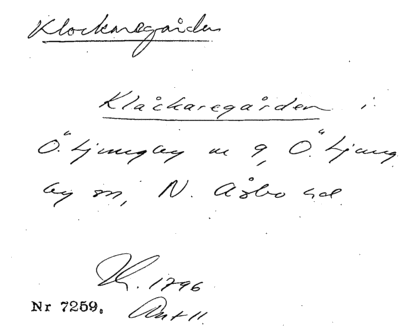 Klockaregården
Klåckaregården i
Ö. Ljungby n 9, Ö. Ljung
by sn, N. Åsbo hd.
1796
Nr 7259.